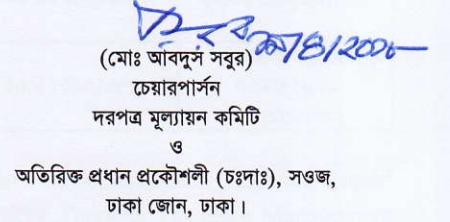 (মোঃ আবদুস সবুর)
চেয়ারপার্সন
দরপত্র মূল্যায়ন কমিটি
ও
অতিরিক্ত প্রধান প্রকৌশলী (চঃদাঃ), সওজ,
ঢাকা জোন, ঢাকা।